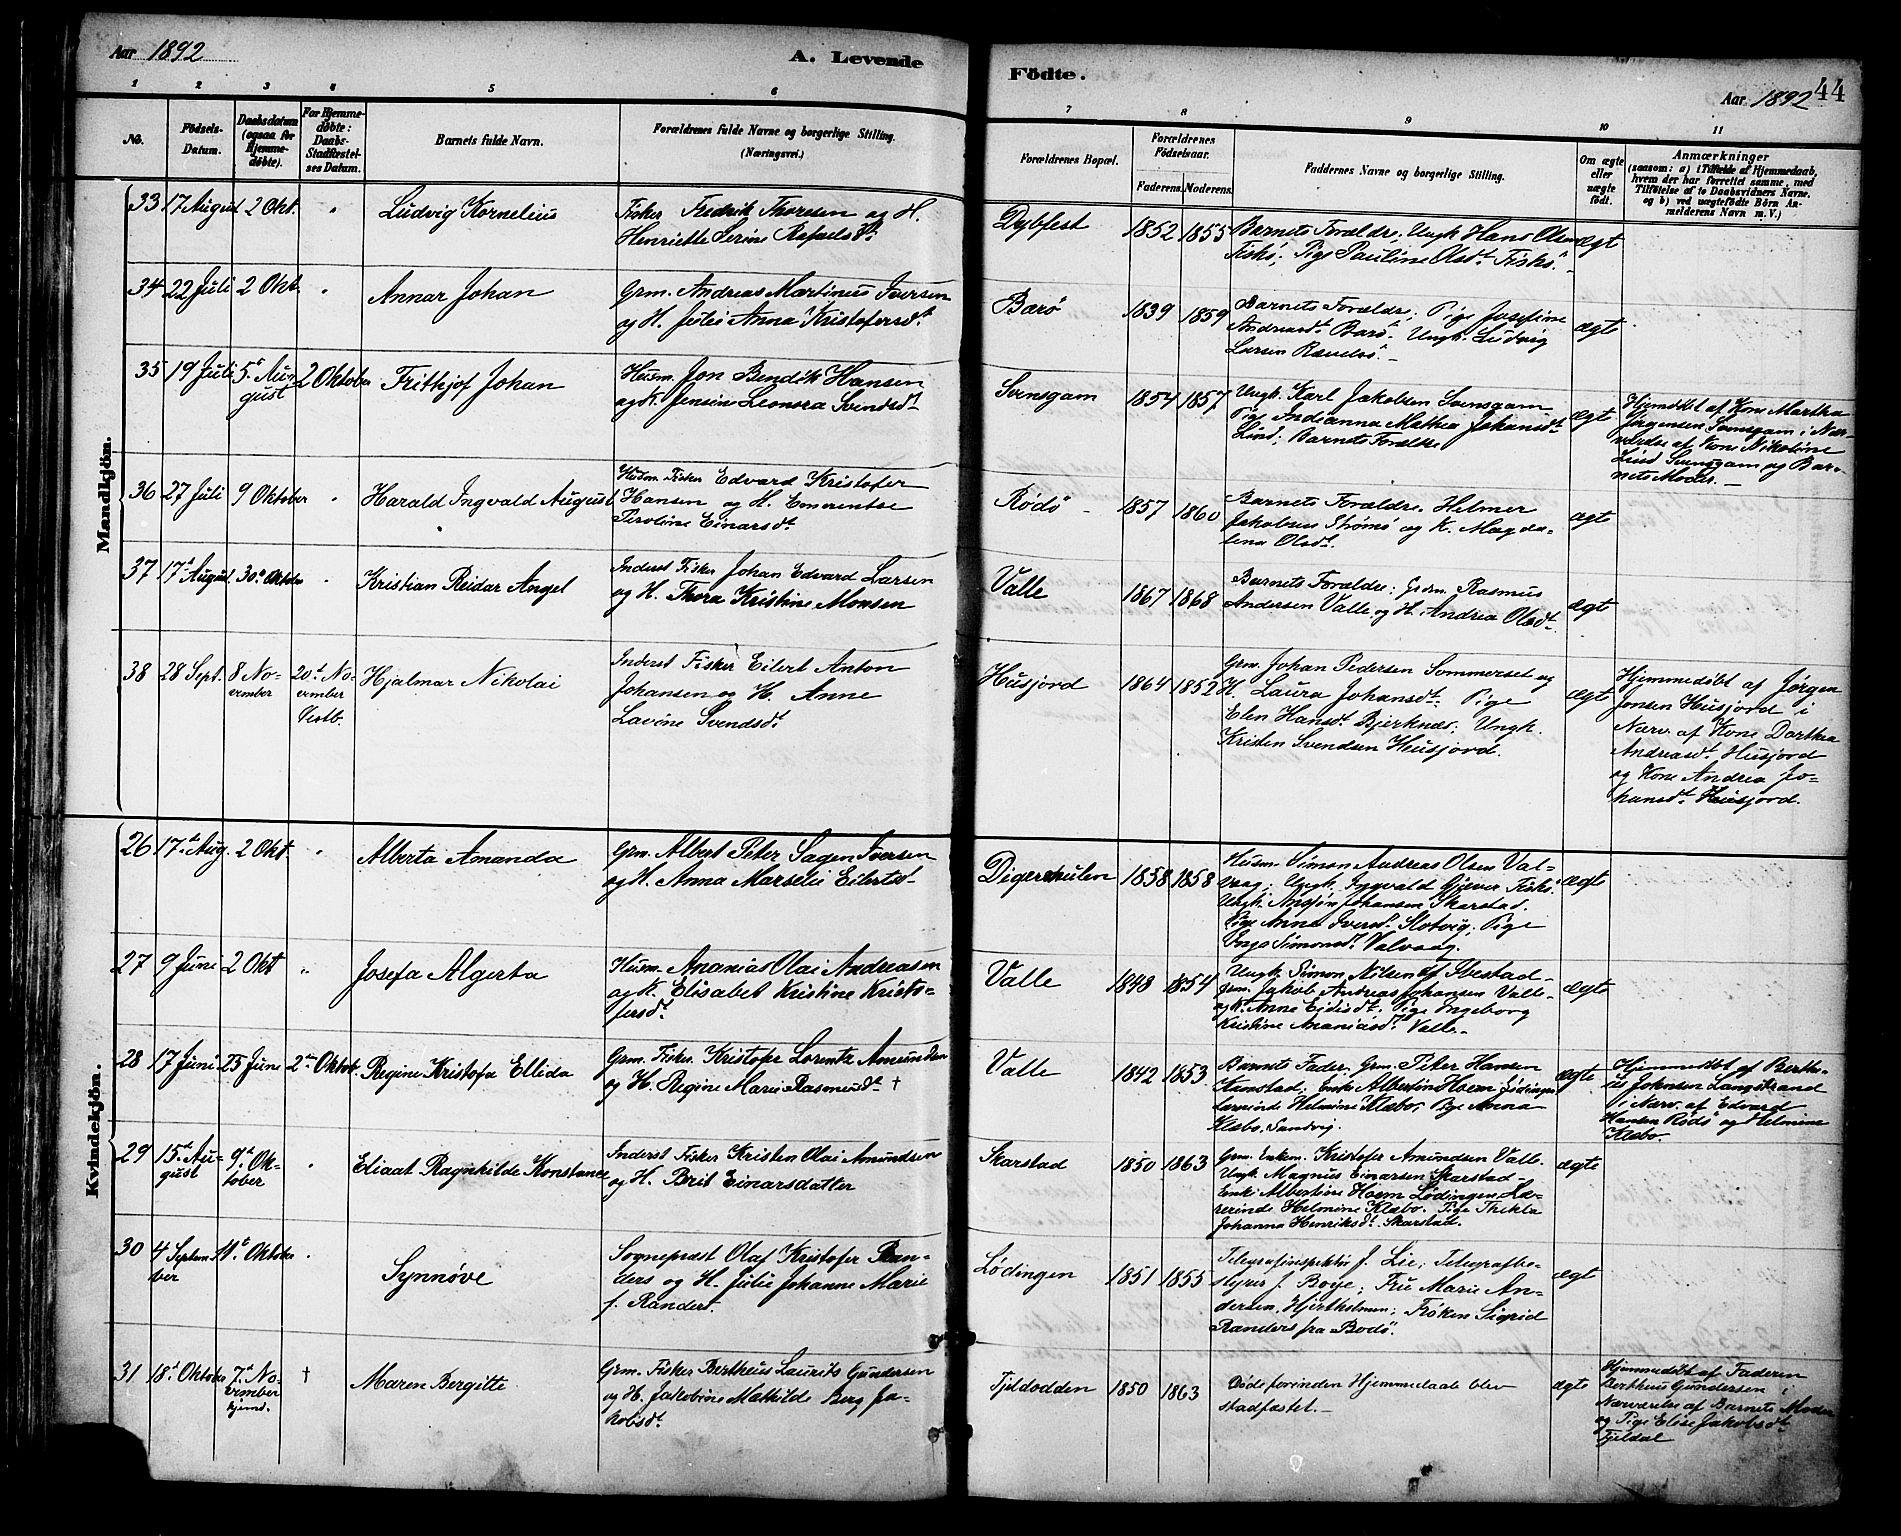 Aar 1892
A. Levende
Födte.
44
Aar 1892
1 2 3 4 5 6 7 8 9 10 11
No.
Födsels-
Datum.
Daabsdatum
(ogsaa for
Hjemme-
døbte).
For Hjemme-
døbte:
Daabs-
Stadfæstel-
ses Datum.
Barnets fulde Navn.
Forældrenes fulde Navne og borgerlige Stilling.
(Næringsvei.)
Forældrenes Bopæl.
Forældrenes
Födselsaar.
Faderens. Moderens.
Faddernes Navne og borgerlige Stilling.
Om ægte
eller
uægte
født.
Anmærkninger
(saasom: a) i Tilfælde af Hjemmedaab,
hvem der har forrettet samme, med
Tilføielse af to Daabsvidners Navne.
og b) ved uægtefödte Börn An-
melderens Navn m. V.)
Mandkjön.
33 17 August 2 Okt. " Ludvig Kornelius
Fisker Fredrik Thoresen og H.
Henriette Serine Rafaelsdt.
Dybfest 1852 1855
Barnets Forældre, Ungk. Hans Olsen
Fiskø; Pige Pauline Olsdt. Fiskø. -
ægt
34 22 Juli 2 Okt. " Annar Johan
Grm. Andreas Martinus Iversen
og H. Julie Anna Kristofersdt.
Barø 1839 1859
Barnets Forældre; Pige Josefine
Andreasdt. Barø. Ungk. Ludvig
Larsen Rævelsø. -
ægte
35 19 Juli 5te August 2 Oktober Frithjof Johan
Husm. Jon Bendik Hansen
og K. Jensine Leonora Svendsdt.
Svensgam 1854 1857
Ungk. Karl Jakobsen Svensgam
Pige Indianna Mathea Johansdt.
Lind; Barnets Forældre
ægte
Hjemdøbt af Kone Martha
Jørgensen Svensgam i Nær-
værelse af Kone Nikoline
Lind Svensgam og Bar-
nets Moder. -
36 27 Juli 9 Oktober " Harald Ingvald August
Husm. Fisker Edvard Kristofer
Hansen og H. Emerentse
Peroline Einarsdt.
Rødø - 1857 1860
Barnets Forældre. Helmer
Jakobsen Strømø og K. Magda-
lena Olsdt.
ægte
37 17d August 30te Oktober " Kristian Reidar Angel
Inderst Fisker Johan Edvard Larsen
og H. Thora Kristine Monsen
Valle 1867 1868
Barnets Forældre; Grdm. Rasmus
Andersen Valle og H. Andrea Olsdt.
ægte
38 28 Sept. 8 November 20d November Vestb. Hjalmar Nikolai
Inderst Fisker Eilert Anton
Johansen og H. Anne
Lavine Svendsdt.
Husjord 1864 1852
Grm. Johan Pedersen Sommerset og
H. Laura Johansdt. Pige
Elen Hansdt. Bjerknæs; Ungk.
Kristen Svendsen Husjord.
ægt
Hjemmedøbt af Jørgen
Jensen Husjord i
Nærv. af Kone Dorthea
Andreasdt. Husjord
og Kone Andrea Jo-
hansdt. Husjord.
Kvindekjön.
26 17de Aug. 2 Okt. " Alberta Amanda
Grm. Albert Peter Sagen Iversen
og H. Anna Marselie Eilertsd.
Digermulen 1858 1858
Husm. Simon Andreas Olsen Val-
vaag; Ungk. Ingvald Gjæver Fiskø.
Ungk. Johansen Skarstad.
Pige Anna Iversd. Slotvig; Pige
Inga Simonsdt. Valvaag.
ægte
27 9 Juni 2 Okt " Josefa Algerta
Husm. Ananias Olai Andreasen
og K. Elisabet Kristine Kristo-
fersdt.
Valle 1848 1854
Ungk. Simon Nilsen af Ibestad -
Grm. Jakob Andreas Johansen Valle -
og K. Anne Eidisdt. Pige Ingeborg
Kristine Ananiasdt. Valle. -
ægte
28 17 Juni 25 Juni 2den Oktob. Regine Kristofa Ellida
Grm. Fisker Kristofer Lorentz Amundsen
og H. Regine Marie Rasmusdt. †
Valle 1842 1853
Barnets Fader. Grm. Peter Hansen
Kanstad; Enke Albertin Hoem Lødingen
Lærerinde Helmine Klæbo, Pige Anna
Klæbo. Sandvig.
ægte
Hjemmedøbt af Berthe-
us Johnsen Langstrand
i Nærv. af Edvard
Hansen Rødø og Helmine
Klæbo.
29 15d August 9d Oktober " Eliaat Ragnhilde Konstance
Inderst Fisker Kristen Olai Amundsen
og H. Berit Einarsdatter
Skarstad 1850 1863
Grm. Enkm. Kristofer Amundsen Valle.
Ungk. Magnus Einarsen Skarstad -
Enke Albertine Hoem Lødingen, Læ-
rerinde Helmine Klæbo. Pige Thekla
Johanna Henriksdt. Skarstad.
ægte
30 4 September 11te Oktober " Synnøve
Sogneprest Olaf Kristofer Ran-
ders og H. Julie Johanne Marie
f. Randers.
Lødingen 1851 1855
Telegrafinspektør J. Lie; Telegrafbe-
styrer J. Boye; Fru Marie An-
dersen, Hjertholmen; Frøken Sigrid
Randers fra Bodø.
ægt
31 18d Oktober 7d November hjemd. † Maren Bergitte
Grm. Fisker Bertheus Laurits Gundersen
og H. Jakobine Mathilde Berg Ja-
kobsdt.
Tjeldodden 1850 1863
Døde forinden Hjemmedaab blev
stadfæstet. -
ægte
Hjemmedøbt af Faderen
Bertheus Gundersen i
Nærværelse af Barnets Moder
og Pige Elise Jakobsdt.
Fjeldal